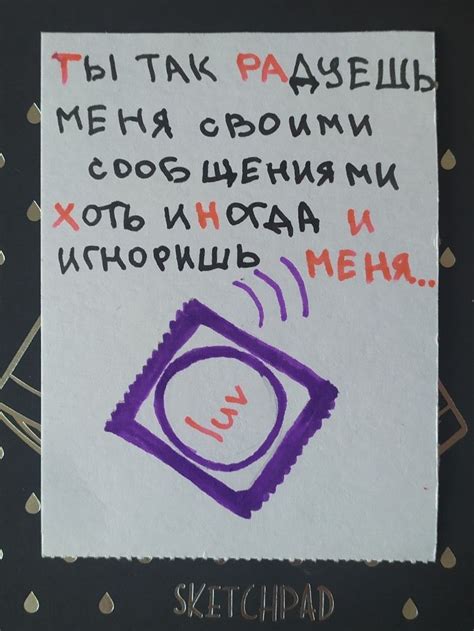 ТЫ ТАК РАДУЕШЬ
МЕНЯ СВОИМИ
СООБЩЕНИЯМИ
ХОТЬ ИНОГДА И
ИГНОРИШЬ МЕНЯ..
luv
SKETCHPAD